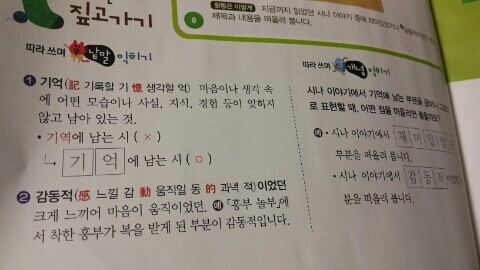 짚고가기
활동은 이렇게 지금까지 읽었던 시나 이야기 중에
8 제목과 내용을 떠올려 봅니다.
따라 쓰며 낱말 익히기
1 기억(記 기록할 기 憶 생각할 억) 마음이나 생각 속
에 어떤 모습이나 사실, 지식, 경험 등이 잊히지
않고 남아 있는 것.
• 기역에 남는 시 ( × )
↳ 기 억 에 남는 시 ( ○ )
2 감동적(感 느낄 감 動 움직일 동 的 과녁 적)이었던
크게 느끼어 마음이 움직이었던. 예 「흥부 놀부」에
서 착한 흥부가 복을 받게 된 부분이 감동적입니다.
따라 쓰며 개념 익히기
시나 이야기에서 기억에 남는 부분을
로 표현할 때, 어떤 점을 떠올리면 좋을까요?
예 • 시나 이야기에서 재 미 있
부분을 떠올려 봅니다.
• 시나 이야기에서 감 동 적
분을 떠올려 봅니다.